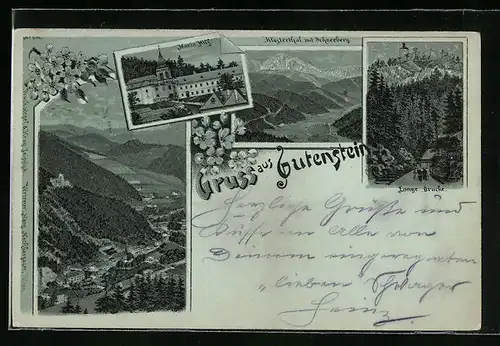 Maria Hilf.
Klosterthal mit Schneeberg
Lange Brücke.
Gruss aus Gutenstein
Herzliche Grüße und
Küsse an Alle von
Deinem
"lieben Schwager
Heinz